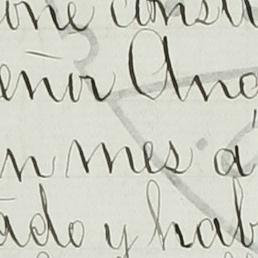 one const
eñor And
n mes á
ado y hab